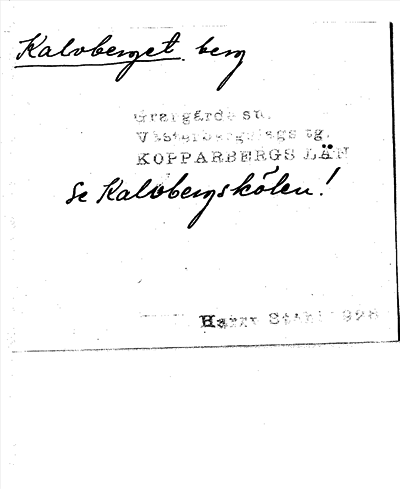 Kalvberget berg
Grangärde sn.
Västerbergslags tg.
KOPPARBERGS LÄN
Se Kalvbergskölen!
Harry Ståhl